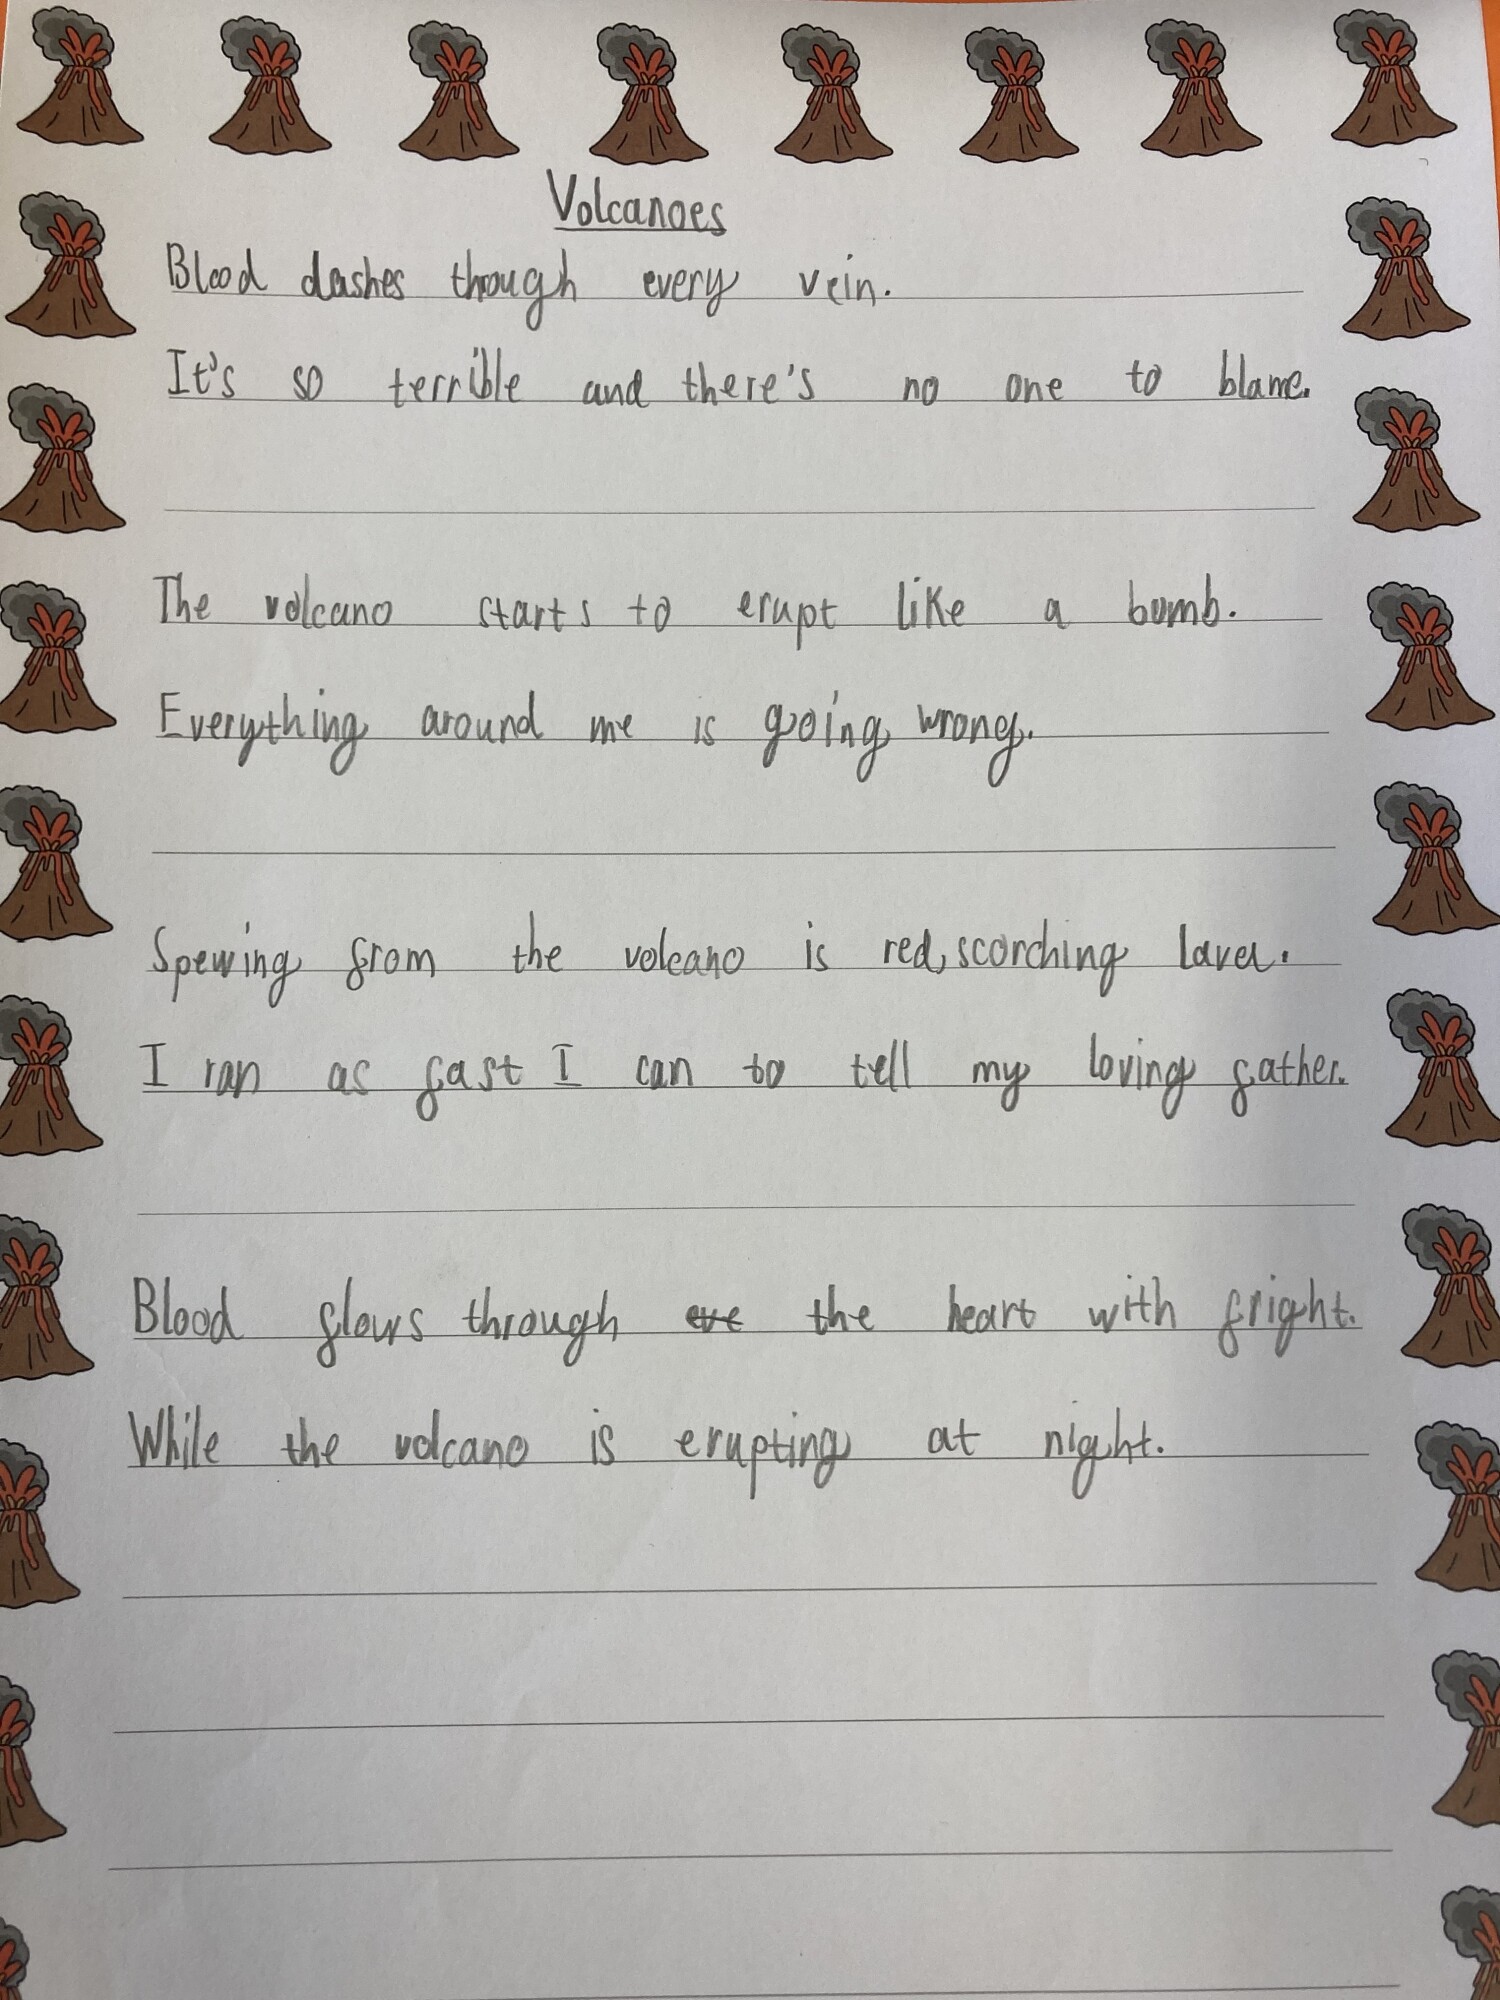 Volcanoes
Blood dashes though every vein.
It's so terrible and there's no one to blame.
The volcano starts to erupt like a bomb.
Everything around me is going wrong.
Spewing from the volcano is red, scorching lava.
I ran as fast I can to tell my loving father.
Blood flows through eve the heart with fright.
While the volcano is erupting at night.